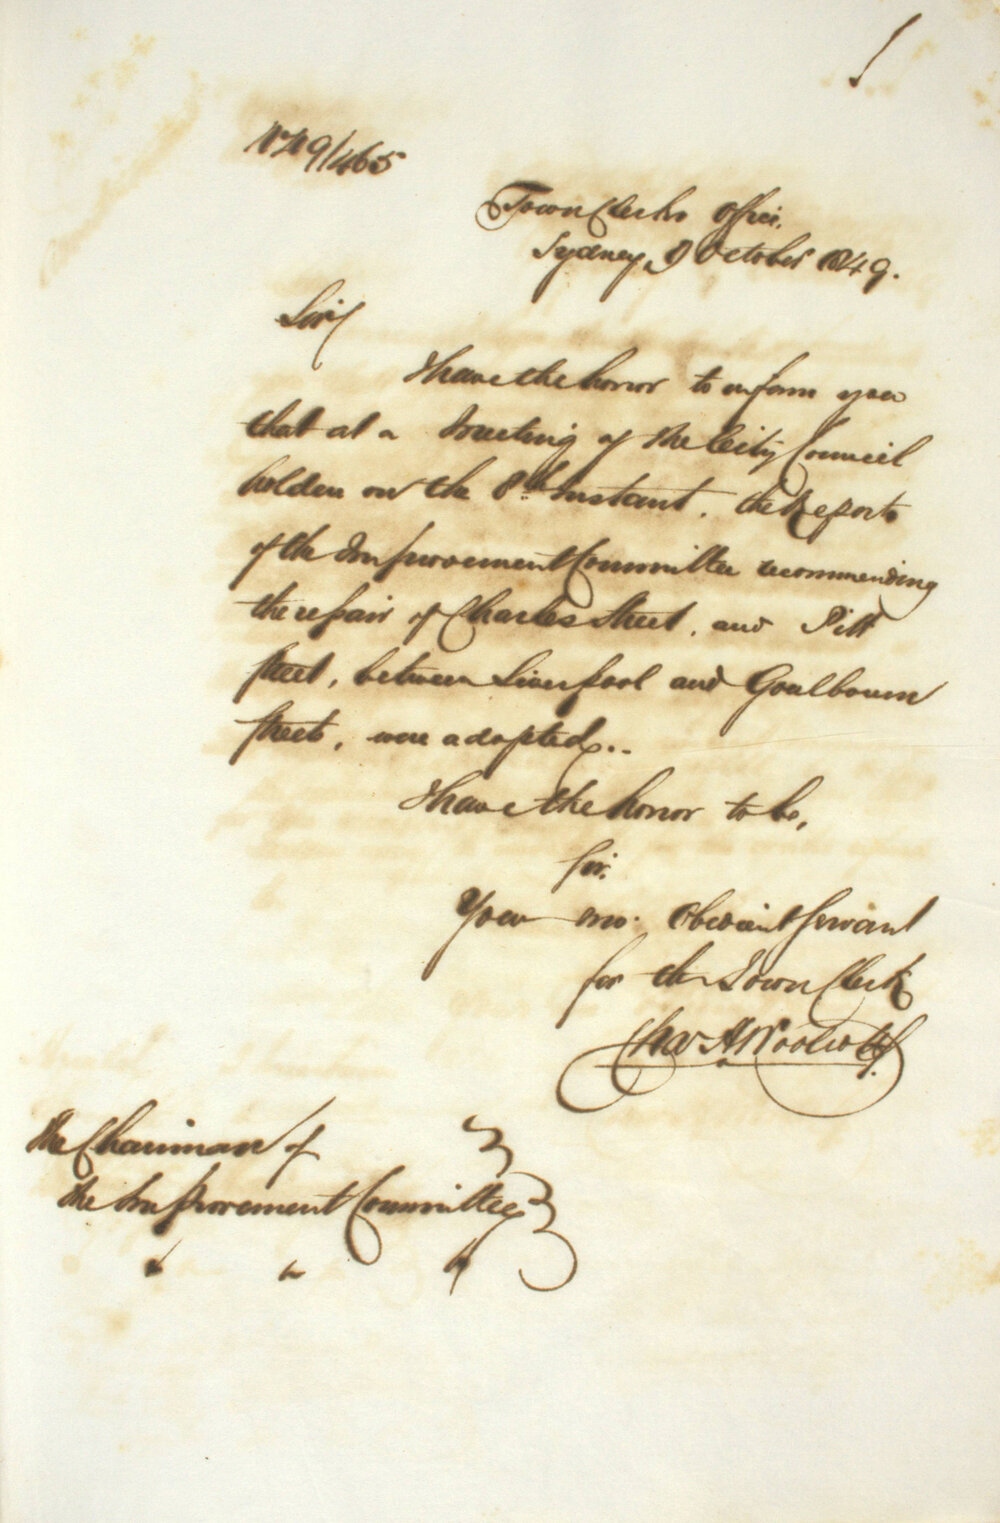 No 49/465
Town Clerks Office.
Sydney, 9 October 1849.
Sir,
I have the honor to inform you
that at a Meeting of the City Council
holden on the 8th Instant, the Reports
of the Improvement Committee recommending
the repair of Charles Street, and Pitt
Street, between Liverpool and Goulbourn
Streets, were adopted..
I have the honor to be,
Sir,
Your mo. Obedient Servant
for the Town Clerk
Chas H Woolcott
The Chairman of
the Improvement Committee